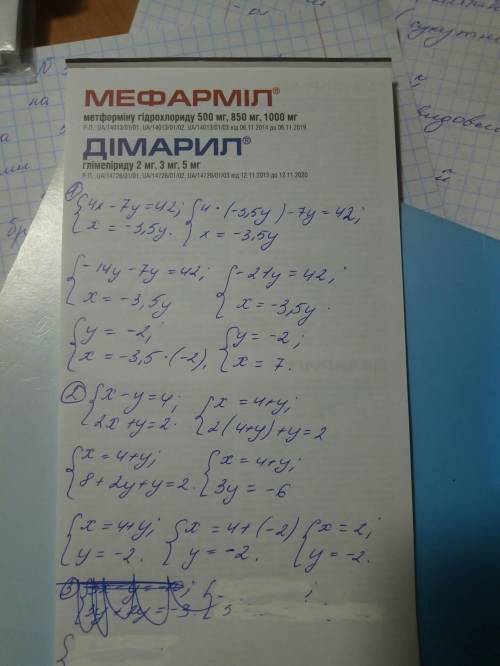 МЕФАРМІЛ®
метформіну гідрохлориду 500 мг, 850 мг, 1000 мг
Р.П.: UA/14013/01/01, UA/14013/01/02, UA/14013/01/03 від 06.11.2014 до 06.11.2019
ДІМАРИЛ®
глімепіриду 2 мг, 3 мг, 5 мг
Р.П.: UA/14726/01/01, UA/14726/01/02, UA/14726/01/03 від 12.11.2015 до 12.11.2020
① {4x - 7y = 42; {4 · (-3,5y) - 7y = 42;
x = -3,5y. x = -3,5y
{-14y - 7y = 42; {-21y = 42;
x = -3,5y x = -3,5y.
{y = -2; {y = -2;
x = -3,5 · (-2). x = 7.
② {x - y = 4; {x = 4 + y;
2x + y = 2. 2(4 + y) + y = 2
{x = 4 + y; {x = 4 + y;
8 + 2y + y = 2. 3y = -6
{x = 4 + y; {x = 4 + (-2) {x = 2;
y = -2. y = -2. y = -2.
③